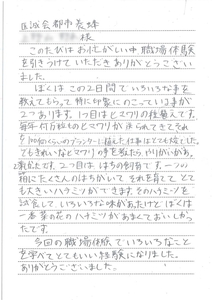 様
このたびはお忙しい中職場体験
を引きうけていただきありがとうござい
ました。
ぼくはこの2日間でいろいろな事を
教えてもらって特に印象にのこっている事が
2つあります。1つ目はヒマワリの仕事です。
毎年何万粒ものヒマワリが
100個くらいのプランターに植えた仕事はとても
ともきれいなヒマワリの事を考えたらやりがいがあ
2つ目ははちの飼育です。一つの
箱にたくさんのはちがいてそれを育てて
も大きいハチミツができます。そのハチミツを
試食していろいろな味があったけどぼくは
一番菜の花のハチミツがあまくておいしかっ
たです。
今回の職場体験でいろいろなこと
を学べてとてもいい経験になりました。
ありがとうございました。